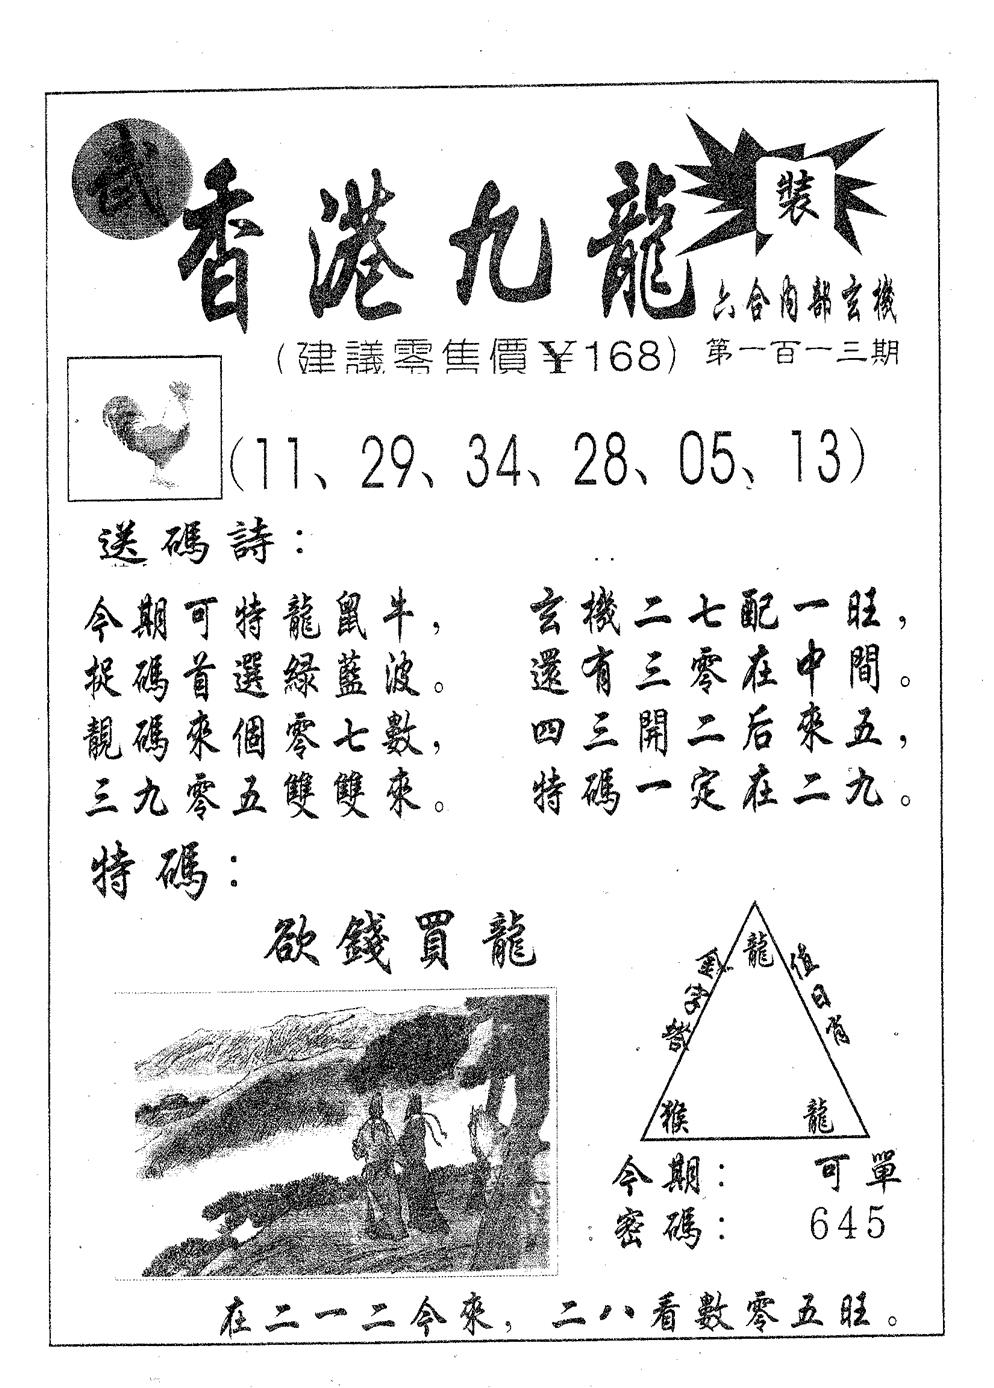 武
香港九龍
裝
六合內部玄機
(建議零售價¥168)
第一百一十三期
(11、29、34、28、05、13)
送碼詩：
今期可特龍鼠牛，
捉碼首選綠藍波。
靚碼來個零七數，
三九零五雙雙來。
玄機二七配一旺，
還有三零在中間。
四三開二后來五，
特碼一定在二九。
特碼：
欲錢買龍
龍
值日肖
猴
龍
今期：可單
密碼：645
在二一二今來，二八看數零五旺。